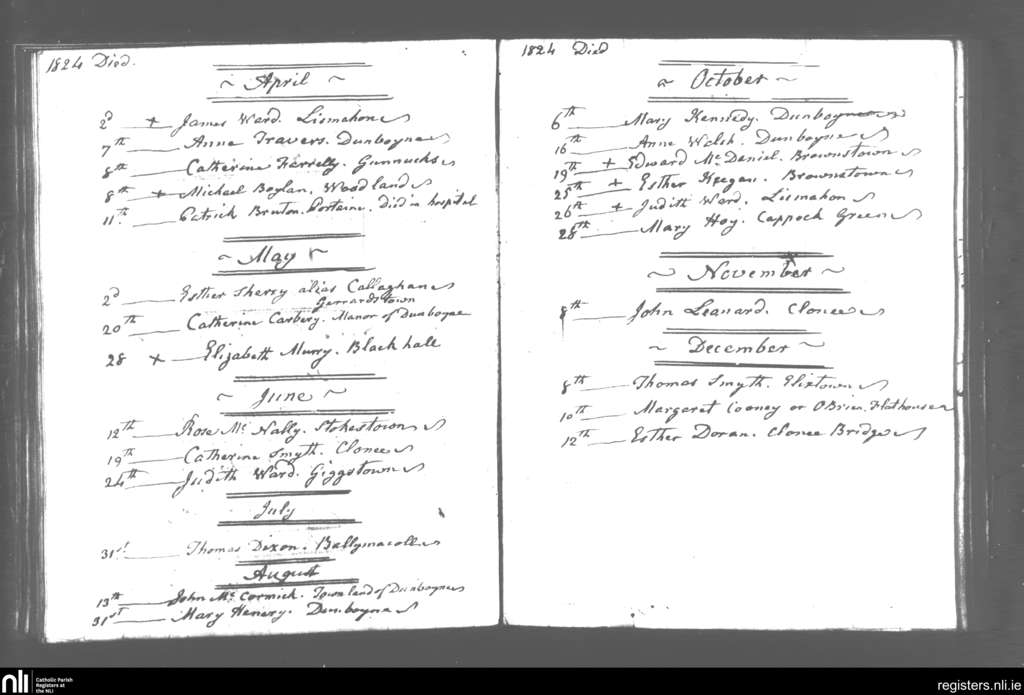 1824 Died.
~ April ~
2d + James Ward. Lismahon
7th Anne Travers. Dunboyne
8th Catherine Farrelly. Gunnocks
8th + Michael Boylan. Woodland
11th Patrick Bruton. Porteine. Died in hospital
~ May ~
2d Esther Sherry alias Callaghan
Gerrardstown
20th Catherine Carbery. Manor of Dunboyne
28 + Elizabeth Murry. Blackhall
~ June ~
12th Rose Mc Nally. Stokestown
19th Catherine Smyth. Clonee
24th Judith Ward. Giggstown
July
31st Thomas Dixon. Ballymacoll
August
13th John Mc Cormick. Townland of Dunboyne
31st Mary Henery. Dunboyne
1824 Died
~ October ~
6th Mary Kennedy. Dunboyne
16th Anne Welsh. Dunboyne
19th + Edward Mc Daniel. Brownstown
25th + Esther Keegan. Brownstown
26th + Judith Ward. Lismahon
28th Mary Hoy. Cappoch Green
~ November ~
8th John Leanard. Clonee
~ December ~
8th Thomas Smyth. Elixtown
10th Margaret Cooney or OBrien. Flathouse
12th Esther Doran. Clonee Bridge
nli Catholic Parish
Registers at
the NLI
registers.nli.ie